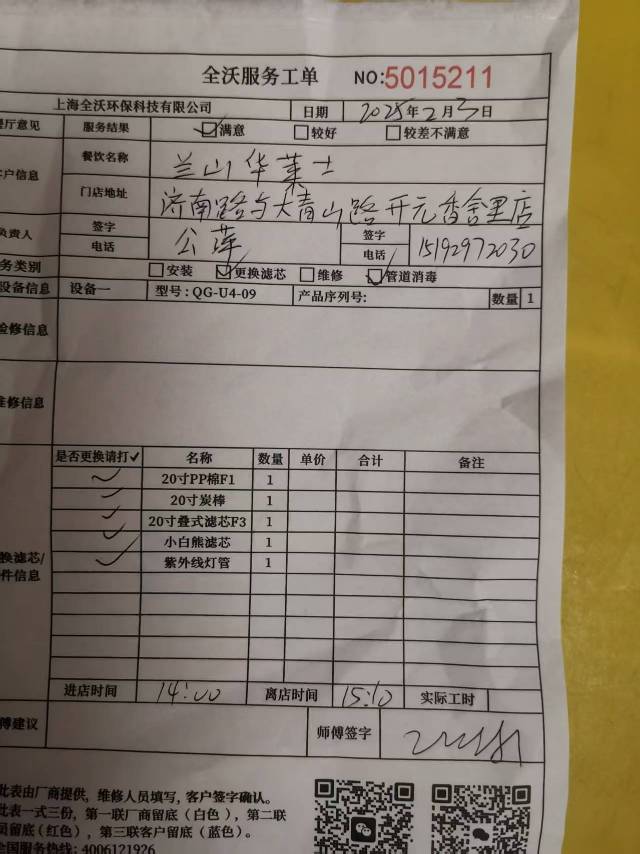 全沃服务工单 NO:5015211
上海全沃环保科技有限公司 日期 2025年2月3日
厅意见 服务结果 ☑满意 □较好 □较差不满意
户信息 餐饮名称 兰山华莱士
门店地址 济南路与大青山路开元香舍里店
负责人 签字 电话 公萍 签字 电话 15192972030
务类别 □安装 ☑更换滤芯 □维修 ☑管道消毒
设备信息 设备一 型号:QG-U4-09 产品序列号: 数量 1
检修信息
维修信息
是否更换请打✓ 名称 数量 单价 合计 备注
✓ 20寸PP棉F1 1
✓ 20寸炭棒 1
✓ 20寸叠式滤芯F3 1
✓ 小白熊滤芯 1
✓ 紫外线灯管 1
换滤芯/
件信息
进店时间 14:00 离店时间 15:10 实际工时
傅建议 师傅签字
此表由厂商提供，维修人员填写，客户签字确认。
此表一式三份，第一联厂商留底（白色），第二联
员留底（红色），第三联客户留底（蓝色）。
全国服务热线: 4006121926